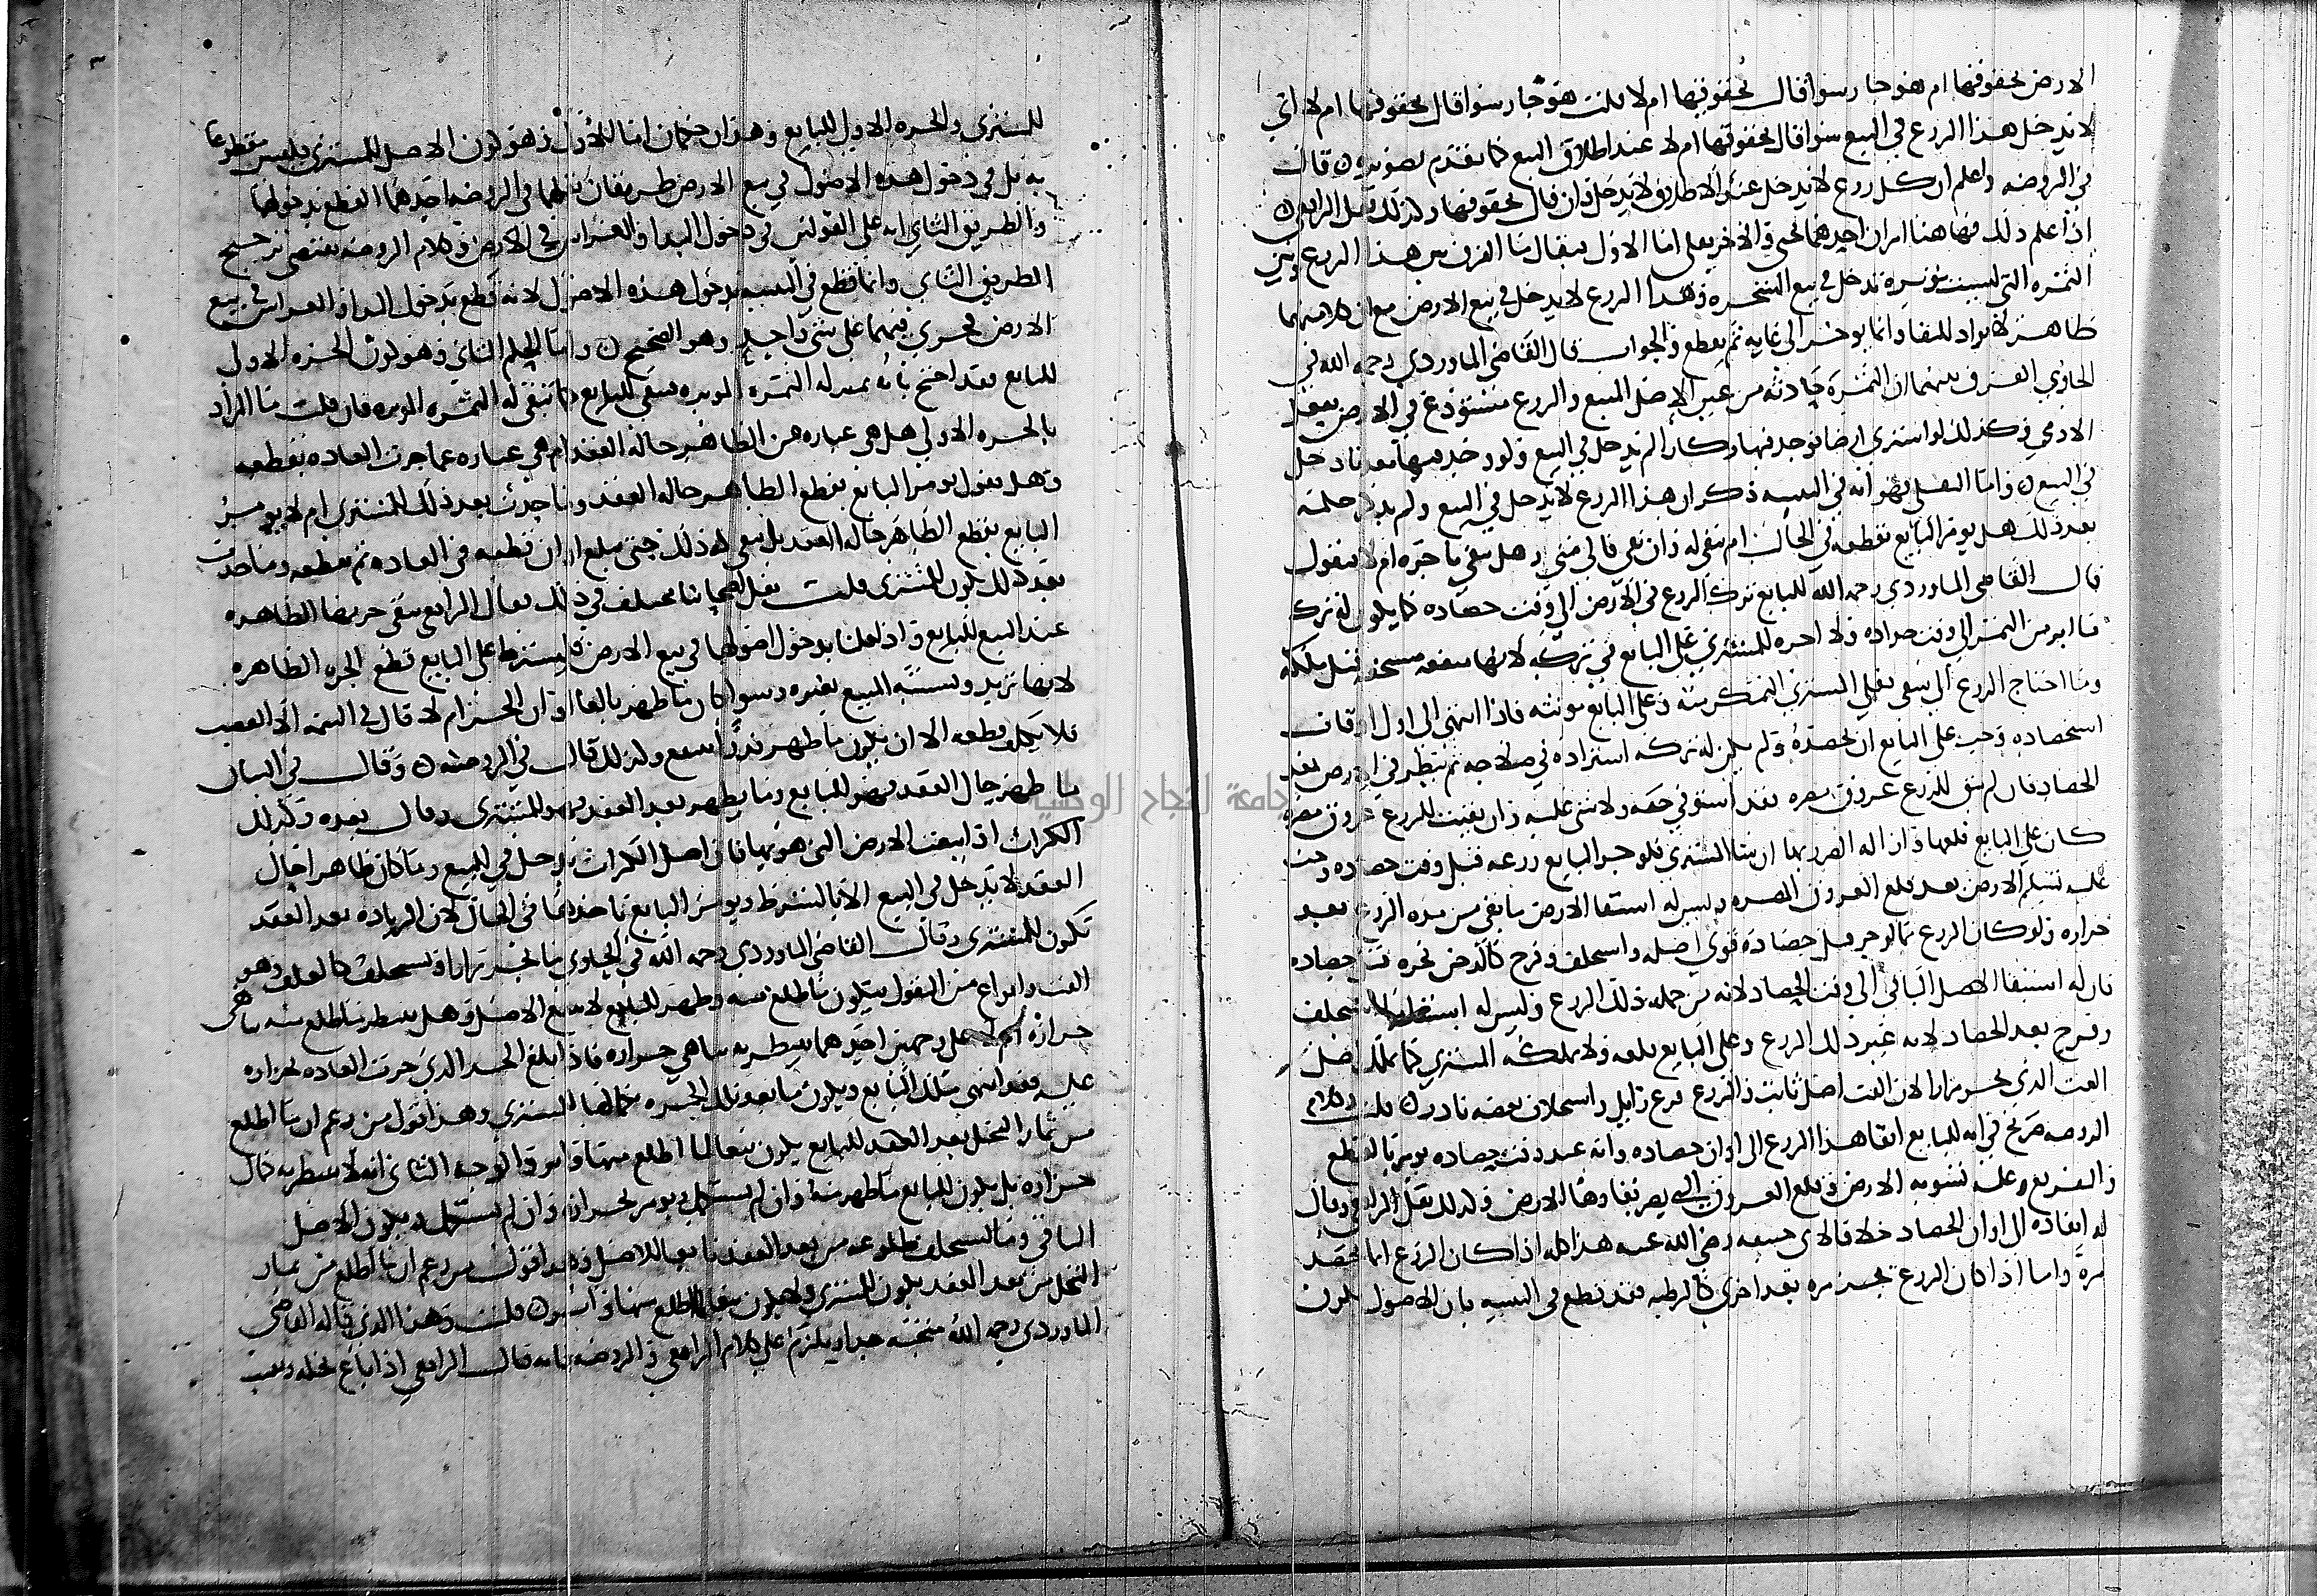 الارض بحقوقها ام هو جار سوا قال بحقوقها ام لا قلت هو جار سوا قال بحقوقها ام لا اي
لا يدخل هذا الزرع في البيع سوا قال بحقوقها ام لا عند اطلاق البيع كما تقدم تصويره قال
في الروضه واعلم ان كل زرع لا يدخل عند الاطلاق لا يدخل وان قال بحقوقها وكذلك نقل الرافعي
اذا علم ذلك فها هنا امران احدهما بحثي والاخر نقلي اما الاول فيقال ما الفرق بين هذا الزرع وبين
الثمره التي ليست موبره تدخل في بيع الشجره وهذا الزرع لا يدخل في بيع الارض مع ان كلا منهما
ظاهر لا يراد للبقا وانما يوخر الى غايه ثم يقطع والجواب قال القاضي الماوردي رحمه الله في
الحاوي الفرق بينهما ان الثمره حادثه من عين الاصل المبيع والزرع مستودع في الارض بفعل
الادمي وكذلك لو اشترى ارضا فوجد فيها ركازا لم يدخل في البيع ولو وجد فيها معدنا دخل
في البيع واما النقلي فهو انه في التنبيه ذكر ان هذا الزرع لا يدخل في البيع ولم يذكر حكمه
بعد ذلك هل يومر البايع بقطعه في الحال ام يبقى له وان بقي فالى متى وهل يبقى باجره ام لا فنقول
قال القاضي الماوردي رحمه الله للبايع ترك الزرع في الارض الى وقت حصاده كما يكون له ترك
ما ابر من الثمر الى وقت جداده ولا اجره للمشتري على البايع في تركه لانها منفعه مستحقه قبل ملكه
وما احتاج الزرع الى سقي فعلى المشتري التمكن منه وعلى البايع مونته فاذا انتهى الى اول اوقات
استحصاده وجب على البايع ان يحصده ولم يكن له تركه استزاده في صلاحه ثم ننظر في الارض بعد
الحصاد فان لم يبق للزرع عروق مضره فقد استوفى حقه ولا شي عليه وان بقيت للزرع عروق مضره
كان على البايع قلعها وازاله الضرر بها ان شا المشتري فلو جز البايع زرعه قبل وقت حصاده وجب
عليه تسليم الارض بعد قلع العروق المضره وليس له استبقا الارض ما بقي من مده الزرع بعد
جزازه ولو كان الزرع مما لو جز قبل حصاده قوي اصله واستخلف وفرخ كالدخن فجزه قبل حصاده
كان له استبقا الاصل الباقي الى وقت الحصاد لانه من جمله ذلك الزرع وليس له استبقا ما استخلف
وفرخ بعد الحصاد لانه غير ذلك الزرع وعلى البايع قلعه ولا يملكه المشتري كما يملك اصل
القت الذي يجز مرارا لان القت اصل ثابت والزرع فرع زايل واستخلاف بعضه نادر قلت وكلام
الروضه صريح في انه للبايع ابقا هذا الزرع الى اوان حصاده وانه عند وقت حصاده يومر بالقطع
والتفريغ وعليه تسويه الارض وقلع العروق التي يضر بقاوها الارض وكذلك نقل الرافعي وقال
له ابقاه الى اوان الحصاد خلافا لابي حنيفه رضي الله عنه هذا كله اذا كان الزرع انما يحصد
مرة واما اذا كان الزرع يجز مره بعد اخرى كالرطبه فقد قطع في التنبيه بان الاصول يكون
للمشتري والجزه الاولى للبايع وهذان حكمان اما الاول وهو كون الاصل للمشتري فليس مقطوعا
به بل في دخول هذه الاصول في بيع الارض طريقان نقلهما في الروضه احدهما القطع بدخولها
والطريق الثاني انه على القولين في دخول البنا والغراس في الارض وكلام الروضه يقتضي ترجيح
الطريق الثاني وانما قطع في التنبيه بدخول هذه الاصول لانه قطع بدخول البنا والغراس في بيع
الارض فجرى فيهما على شي واحد وهو الصحيح واما الحكم الثاني وهو كون الجزه الاولى
للبايع فقد احتج بانه بمنزله الثمره الموبره فتبقى للبايع كما تبقى له الثمره الموبره فان قلت ما المراد
بالجزه الاولى هل هي عباره عن الظاهر حاله العقد ام هي عباره عما جرت العاده بقطعه
وهل نقول يومر البايع بقطع الظاهر حاله العقد وما حدث بعد ذلك للمشتري ام لا يومر
البايع بقطع الظاهر حاله العقد بل يبقى له ذلك حتى يبلغ اوان قطعه في العاده ثم يقطعه وما حدث
بعد ذلك يكون للمشتري قلت نقل اصحابنا مختلف في ذلك فقال الرافعي تبقى جزتها الظاهره
عند البيع للبايع واذا قلنا بدخول اصولها في بيع الارض فيشترط على البايع قطع الجزه الظاهره
لانها تزيد ويشتبه المبيع بغيره وسوا كان ما ظهر بالغا اوان الجز ام لا قال في التتمه الا القصب
فلا يكلف قطعه الا ان يكون ما ظهر قدرا ينتفع به وكذلك قال في الروضه وقال في البيان
ما ظهر حال العقد فهو للبايع وما يظهر بعد العقد فهو للمشتري وقال بعده وكذلك
الكراث اذا بيعت الارض التي هو فيها فان اصل الكراث يدخل في البيع وما كان ظاهرا حال
العقد لا يدخل في البيع الا بالشرط ويومر البايع باخذها في الحال لان الزياده بعد العقد
تكون للمشتري وقال القاضي الماوردي رحمه الله في الحاوي ما يجز مرارا ويستخلف كالعلف وهو
القت وانواع من البقول فيكون ما طلع منه وظهر للبايع لا يتبع الاصل وهل ينتظر بما طلع منه تناهي
جزازه ام لا على وجهين احدهما ينتظر به تناهي جزازه فاذا بلغ الحد الذي جرت العاده بجزازه
عليه فقد انتهى ملك البايع ويكون ما بعد تلك الجزه للمشتري وهذا قول من زعم ان ما اطلع
من ثمار النخل بعد العقد للبايع يكون تبعا لما اطلع منها وابر والوجه الثاني انه لا ينتظر به كمال
جزازه بل يكون للبايع ما ظهر منه وان لم يستكمل ويومر بجزازه وان لم يستكمل ويكون الاصل
الباقي وما يستخلف طلوعه من بعد العقد تابعا للاصل وهذا قول من زعم ان ما اطلع من ثمار
النخل من بعد العقد يكون للمشتري ولا يكون تبعا لما اطلع منها قلت وهذا الذي قاله القاضي
الماوردي رحمه الله متجه جدا ويلزم على كلام الرافعي والروضه بانه قال الرافعي اذا باع نخله وبقيت